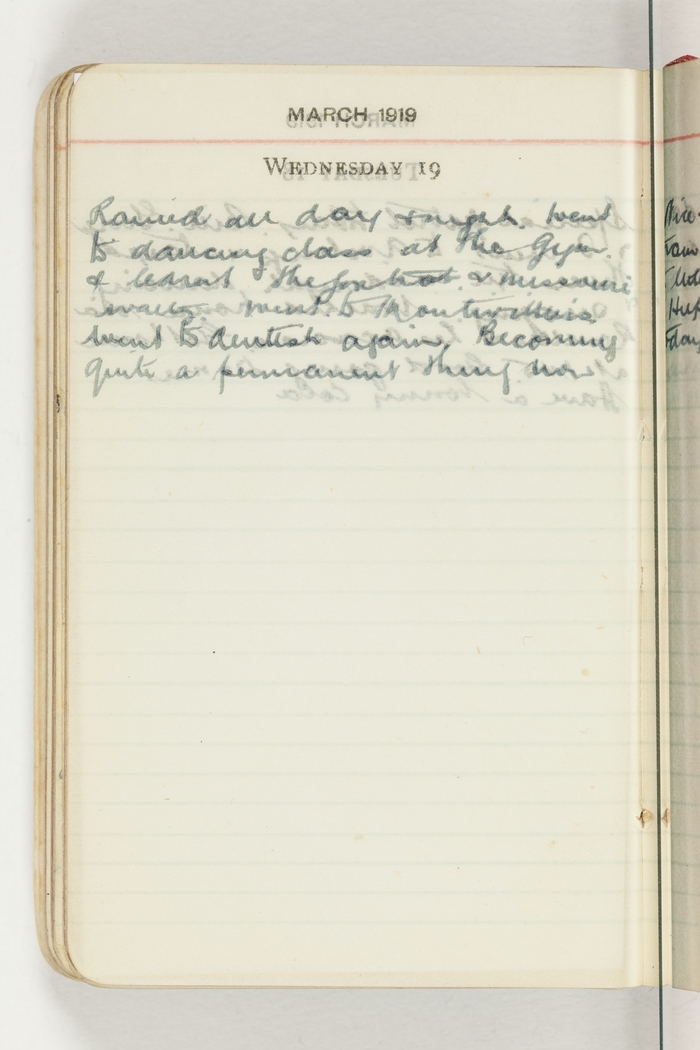 MARCH 1919
WEDNESDAY 19
Rained all day & night. Went
to dancing class at the Gym.
& learnt the foxtrot & missouri
waltz. Went to
went to dentist again. Becoming
quite a permanent thing now